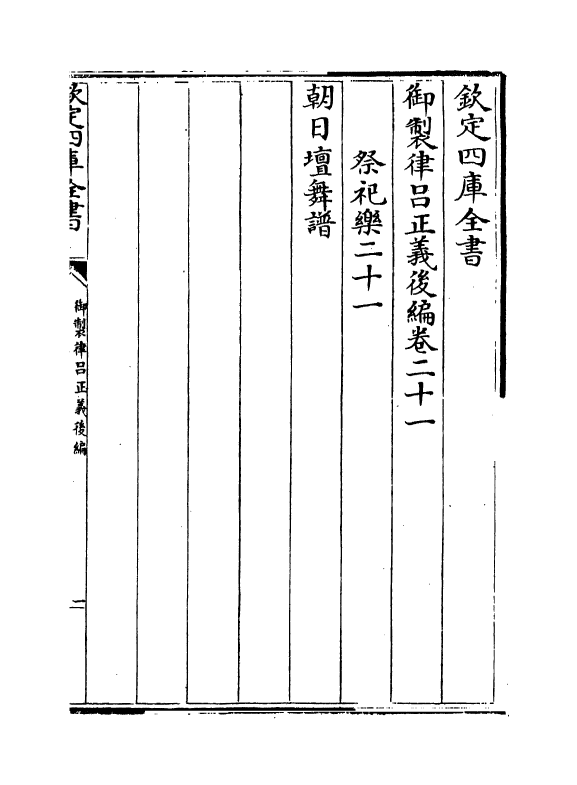 欽定四庫全書
御製律呂正義後編卷二十一
祭祀樂二十一
朝日壇舞譜
欽定四庫全書
御製律呂正義後編
二